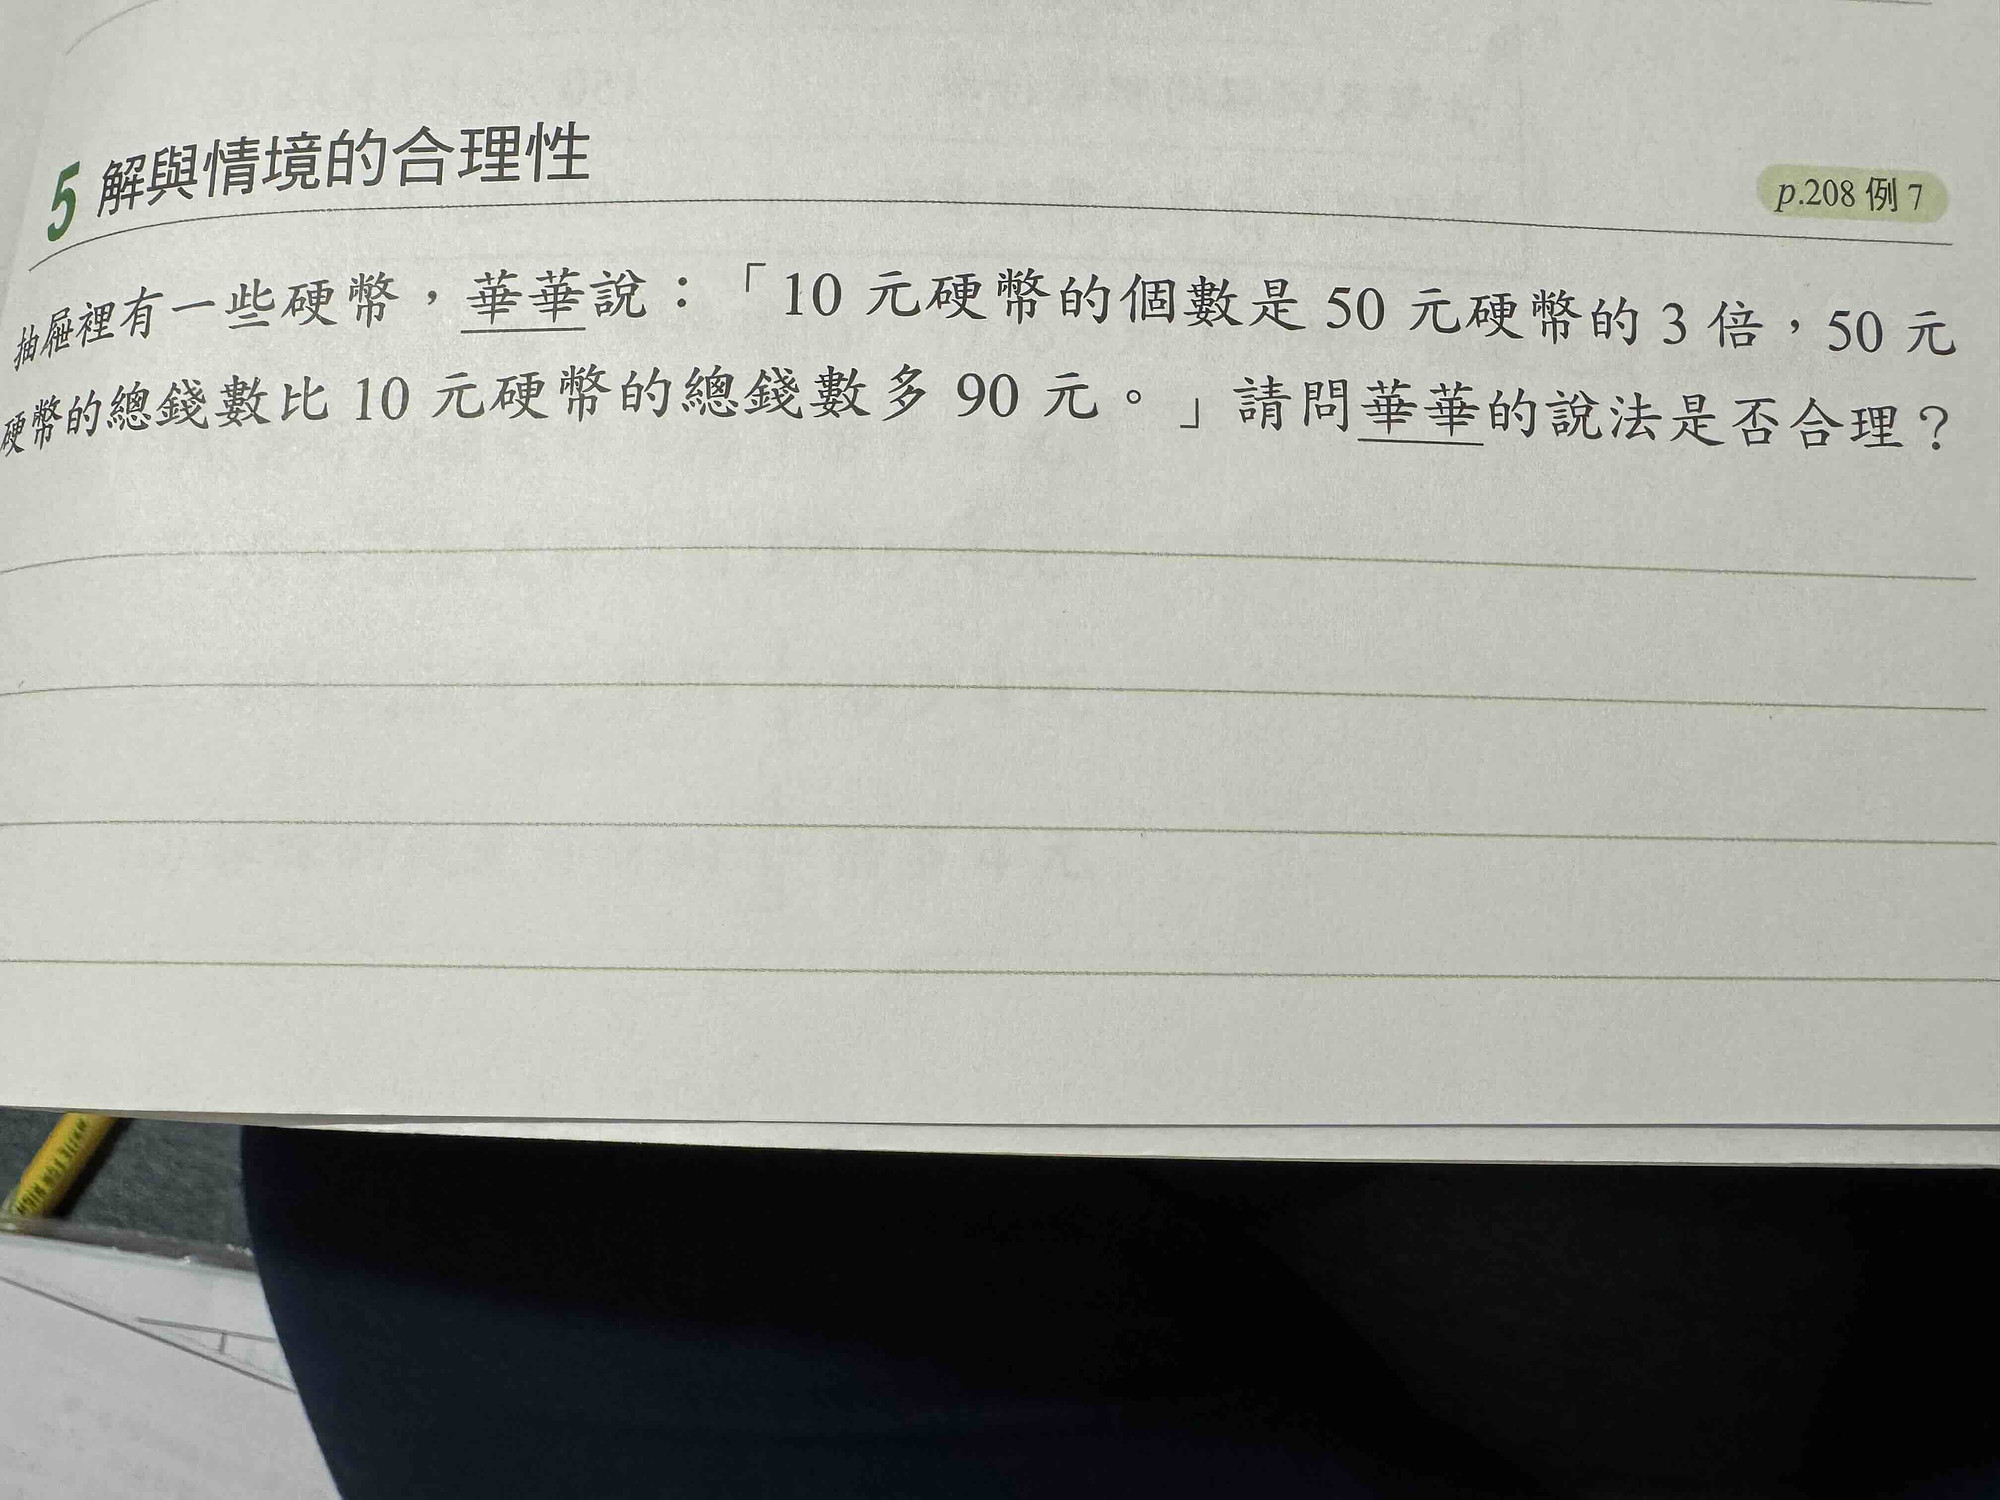 5 解與情境的合理性
p.208 例 7
抽屜裡有一些硬幣，華華說：「10 元硬幣的個數是 50 元硬幣的 3 倍，50 元
硬幣的總錢數比 10 元硬幣的總錢數多 90 元。」請問華華的說法是否合理？